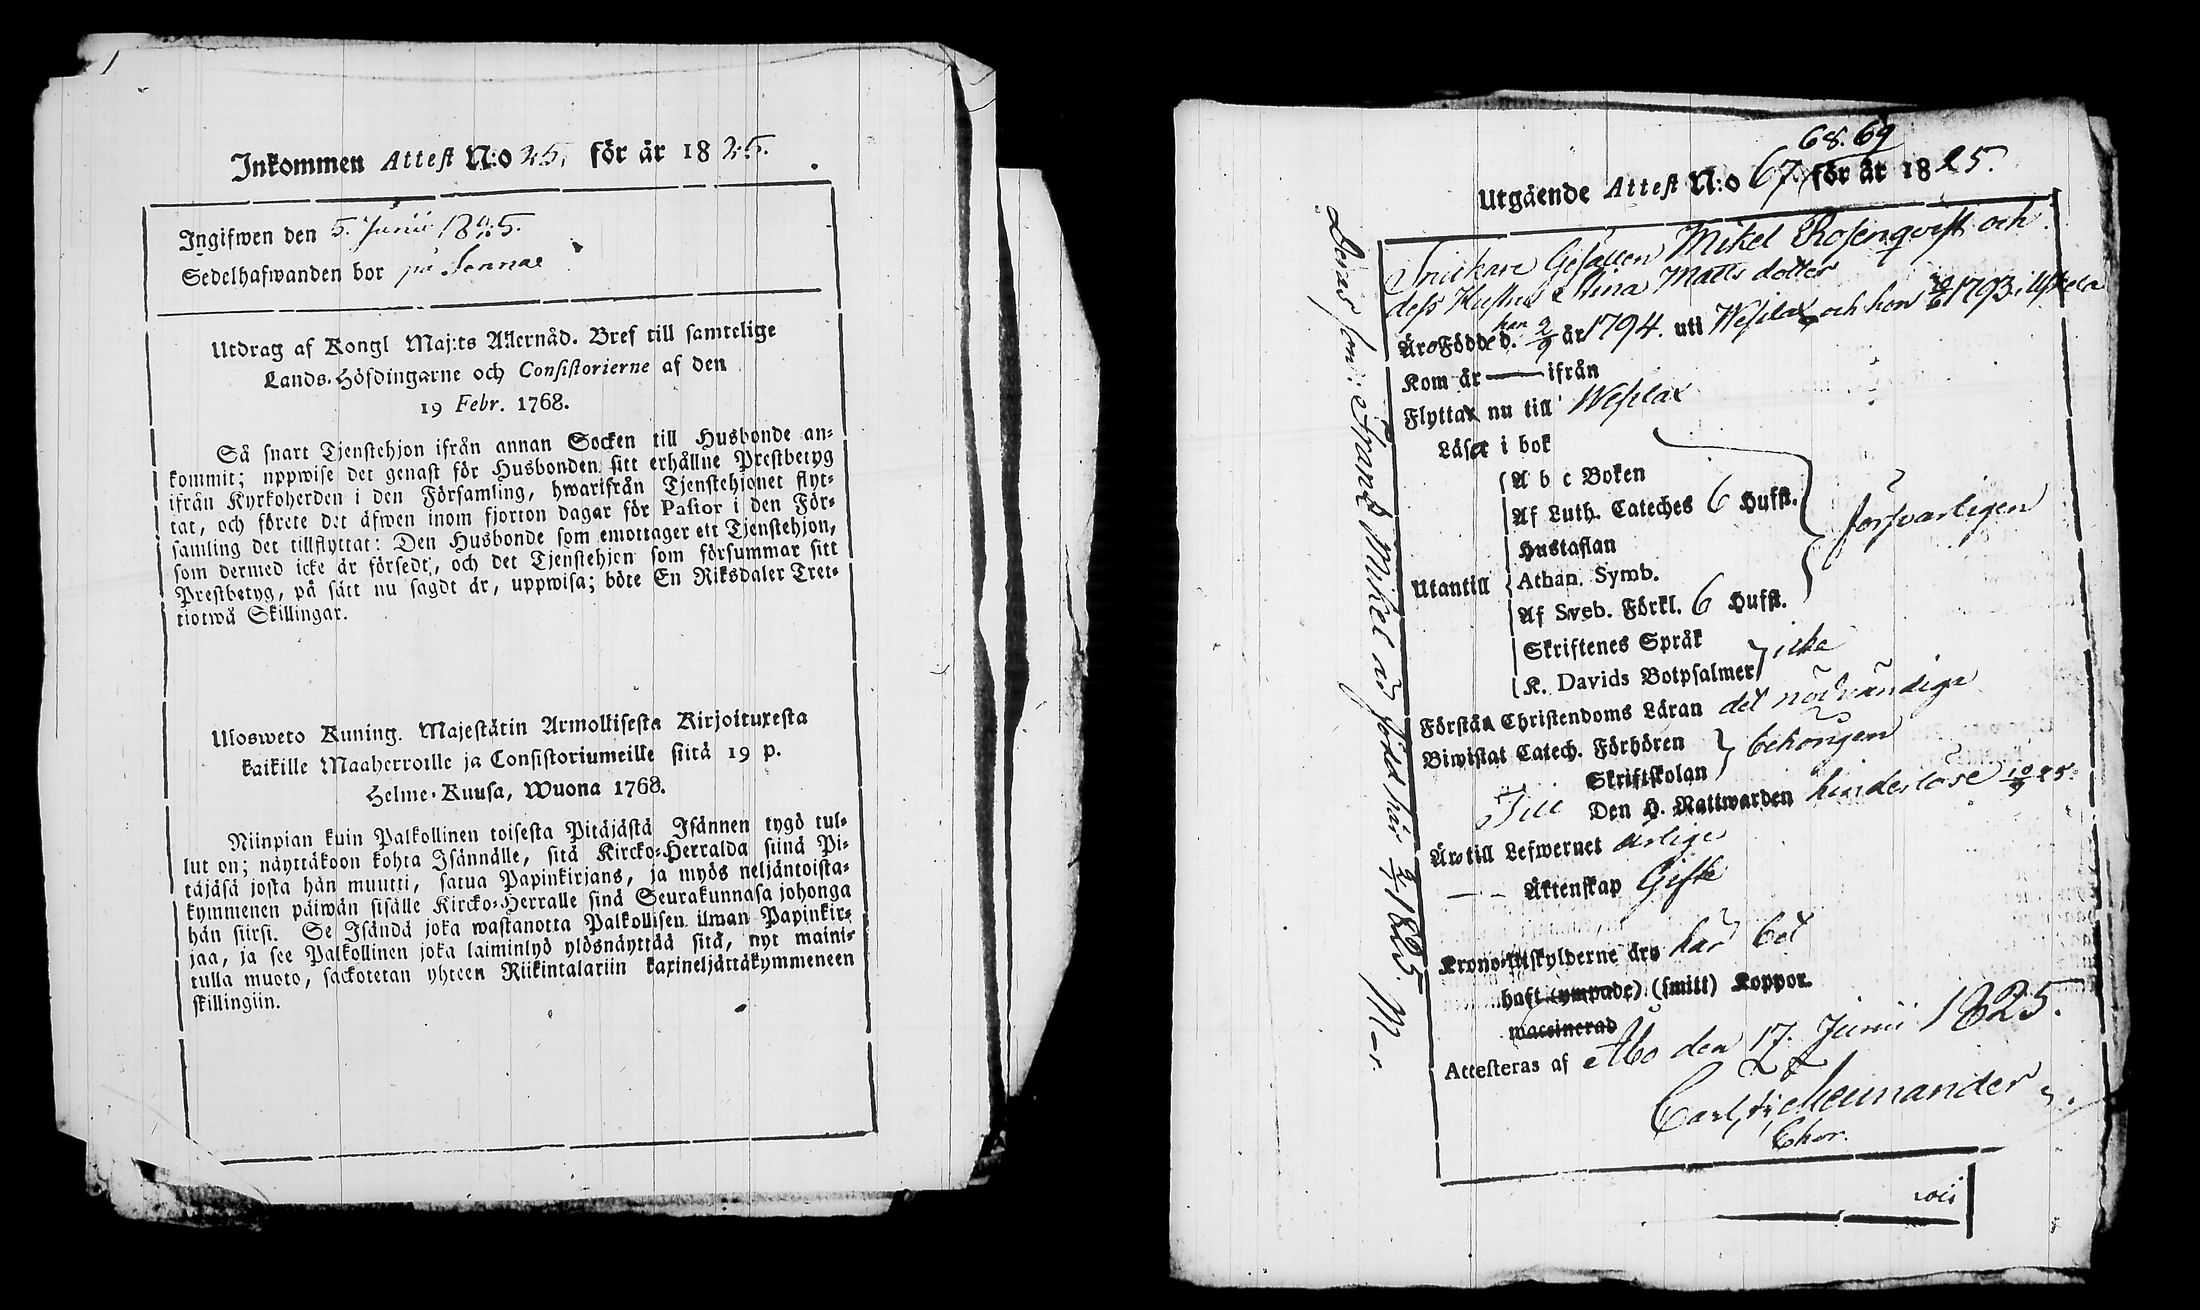 Inkommen Attest N:o 25, för år 1825.
Ingifwen den 5. Junii 1825.
Sedelhafwanden bor på
Utdrag af Kongl Maj:ts Allernåd. Bref till samtelige
Lands-Höfdingarne och Consistorierne af den
19 Febr. 1768.
Så snart Tjenstehjon ifrån annan Socken till Husbonde an-
kommit; uppwise det genast för Husbonden sitt erhållne Prestbetyg
ifrån Kyrkoherden i den Församling, hwarifrån Tjenstehjonet flyt-
tat, och förete det äfwen inom fjorton dagar för Pastor i den För-
samling det tillflyttat: Den Husbonde som emottager ett Tjenstehjon,
som dermed icke är försedt, och det Tjenstehjon som försummar sitt
Prestbetyg, på sätt nu sagdt är, uppwisa; böte En Riksdaler Tret-
tiotwå Skillingar.
Ulosweto Kuning. Majestätin Armollisesta Kirjoituxesta
kaikille Maaherroille ja Consistoriumeille siitä 19 p.
Helme-Kuusa, Wuona 1768.
Niinpian kuin Palkollinen toisesta Pitäjästä Isännen tygö tul-
lut on; näyttäkoon kohta Isännälle, sitä Kircko-Herralda siinä Pi-
täjäsä josta hän muutti, satua Papinkirjans, ja myös neljäntoista-
kymmenen päiwän sisälle Kircko-Herralle sinä Seurakunnasa johonga
hän siirsi. Se Isändä joka wastanotta Palkollisen ilman Papinkir-
jaa, ja see Palkollinen joka laiminlyö ylösnäyttää sitä, nyt maini-
tulla muoto, sackotetan yhteen Riikintalariin kaxineljättäkymmeneen
skillingiin.
68. 69
Utgående Attest N:o 67. för år 1825.
Snickare Gesällen Mikel Rosenqvist och
dess Hustru Stina Matts dotter
Äro Födde d. han 2/9 år 1794. uti Westlax och hon 1793.
Kom år — ifrån
Flytta nu till Westlax
Läsa i bok
A b c Boken
Af Luth. Cateches 6 Hufst.
Hustaflan
Utantill Athan. Symb.
Af Sveb. Förkl. 6 Hufst.
försvarligen
Skriftenes Språk
K. Davids Botpsalmer icke
Förstå Christendoms Läran det nödvändiga
Biwistat Catech. Förhören
Skriftskolan
behörigen
Till Den H. Nattwarden hinderlöse 25.
Äro till Lefwernet ärlige
— — Äktenskap Gifte
Krono-Utskylderne äro här bet
haft (ympade) (smitt) Koppor.
waccinerad
Attesteras af Åbo den 17. Junii 1825.
Carl Fr: Meunander
Deras son: Frans Mikel är född här 1825. M-r